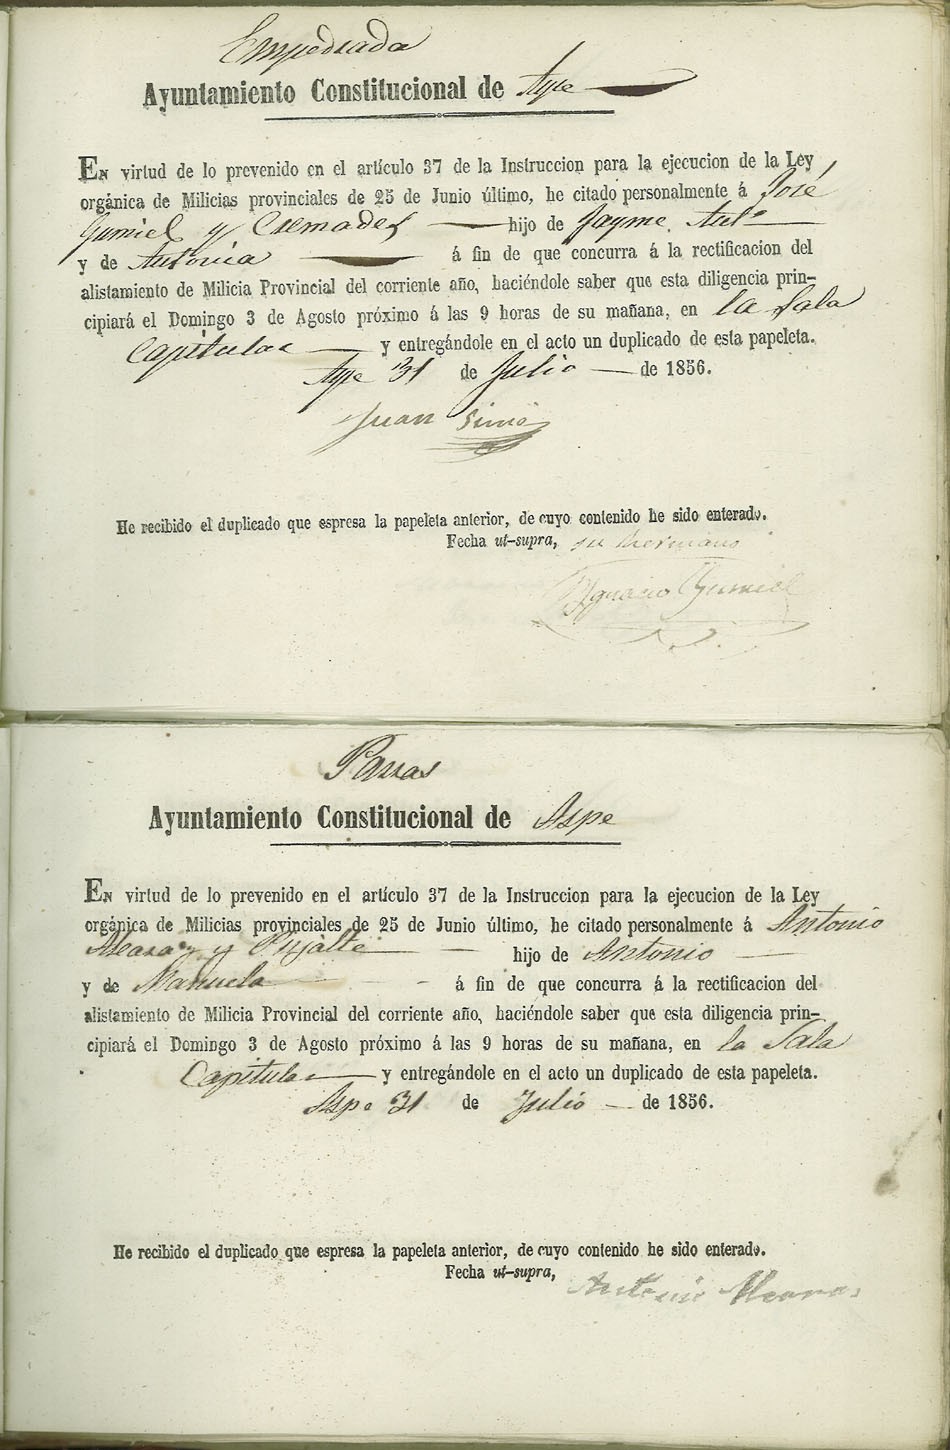 Empedrada
Ayuntamiento Constitucional de Aspe
En virtud de lo prevenido en el artículo 37 de la Instruccion para la ejecucion de la Ley
orgánica de Milicias provinciales de 25 de Junio último, he citado personalmente á José
Gumiel y Cremades hijo de Jayme Ant.º
y de Antonia á fin de que concurra á la rectificacion del
alistamiento de Milicia Provincial del corriente año, haciéndole saber que esta diligencia prin-
cipiará el Domingo 3 de Agosto próximo á las 9 horas de su mañana, en la Sala
Capitular y entregándole en el acto un duplicado de esta papeleta.
Aspe 31 de Julio de 1856.
Juan Simó
He recibido el duplicado que espresa la papeleta anterior, de cuyo contenido he sido enterado.
Fecha ut-supra, su hermano
Ygnacio Gumiel
Parras
Ayuntamiento Constitucional de Aspe
En virtud de lo prevenido en el artículo 37 de la Instruccion para la ejecucion de la Ley
orgánica de Milicias provinciales de 25 de Junio último, he citado personalmente á Antonio
Alcaraz y Pujalte hijo de Antonio
y de Manuela á fin de que concurra á la rectificacion del
alistamiento de Milicia Provincial del corriente año, haciéndole saber que esta diligencia prin-
cipiará el Domingo 3 de Agosto próximo á las 9 horas de su mañana, en la Sala
Capitular y entregándole en el acto un duplicado de esta papeleta.
Aspe 31 de Julio de 1856.
He recibido el duplicado que espresa la papeleta anterior, de cuyo contenido he sido enterado.
Fecha ut-supra, Antonio Alcaras